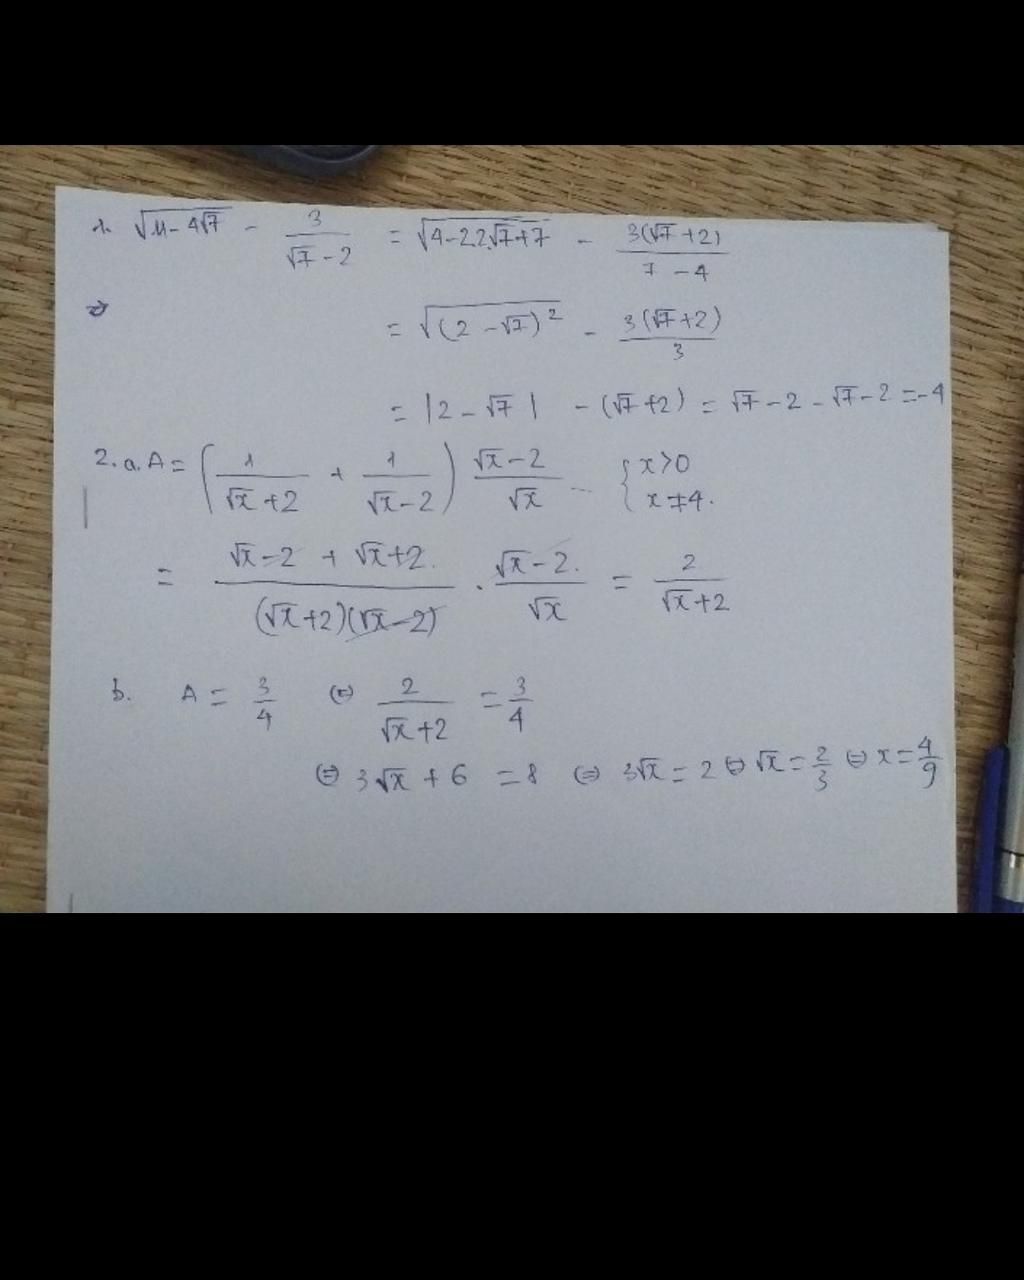 1. √(11-4√7) - 3/(√7-2) = √(4-2.2.√7+7) - 3(√7+2)/(7-4)
= √((2-√7)²) - 3(√7+2)/3
= |2-√7| - (√7+2) = √7-2-√7-2 = -4
2.a. A = (1/(√x+2) + 1/(√x-2)) (√x-2)/√x { x>0 x≠4.
= (√x-2 + √x+2)/((√x+2)(√x-2)) . (√x-2)/√x = 2/(√x+2)
b. A = 3/4 (=) 2/(√x+2) = 3/4
(=) 3√x + 6 = 8 (=) 3√x = 2 (=) √x = 2/3 (=) x = 4/9